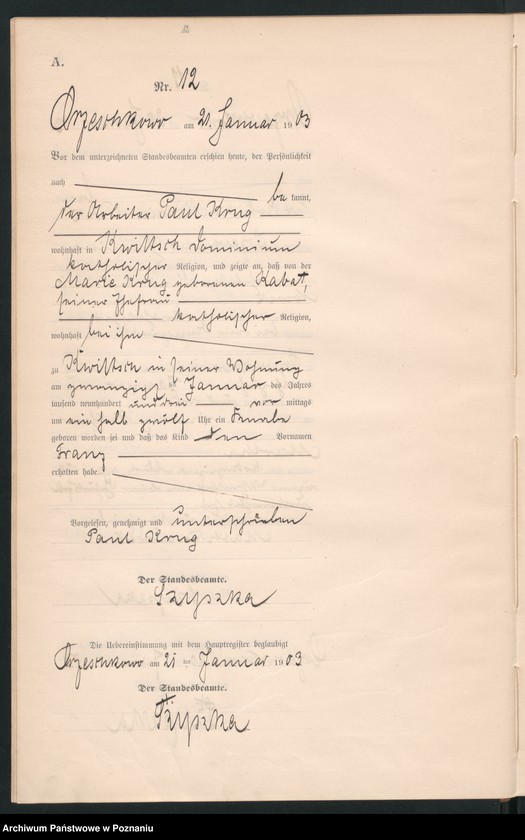 A.
Nr. 12
Orzeschkowo am 21. Januar 1903
Vor dem unterzeichneten Standesbeamten erschien heute, der Persönlichkeit
nach be kannt,
der Arbeiter Paul Krug
wohnhaft in Kwiltsch Dominium
katholischer Religion, und zeigte an, daß von der
Marie Krug geborenen Rabat,
seiner Ehefrau
katholischer Religion,
wohnhaft bei ihm
zu Kwiltsch in seiner Wohnung
am zwanzigst ten Januar des Jahres
tausend neunhundert und drei vor mittags
um ein halb zwölf Uhr ein Knabe
geboren worden sei und daß das Kind den Vornamen
Franz
erhalten habe
Vorgelesen, genehmigt und unterschrieben
Paul Krug
Der Standesbeamte.
Szyszka
Die Uebereinstimmung mit dem Hauptregister beglaubigt
Orzeschkowo am 21 ten Januar 1903
Der Standesbeamte.
Szyszka
Archiwum Państwowe w Poznaniu